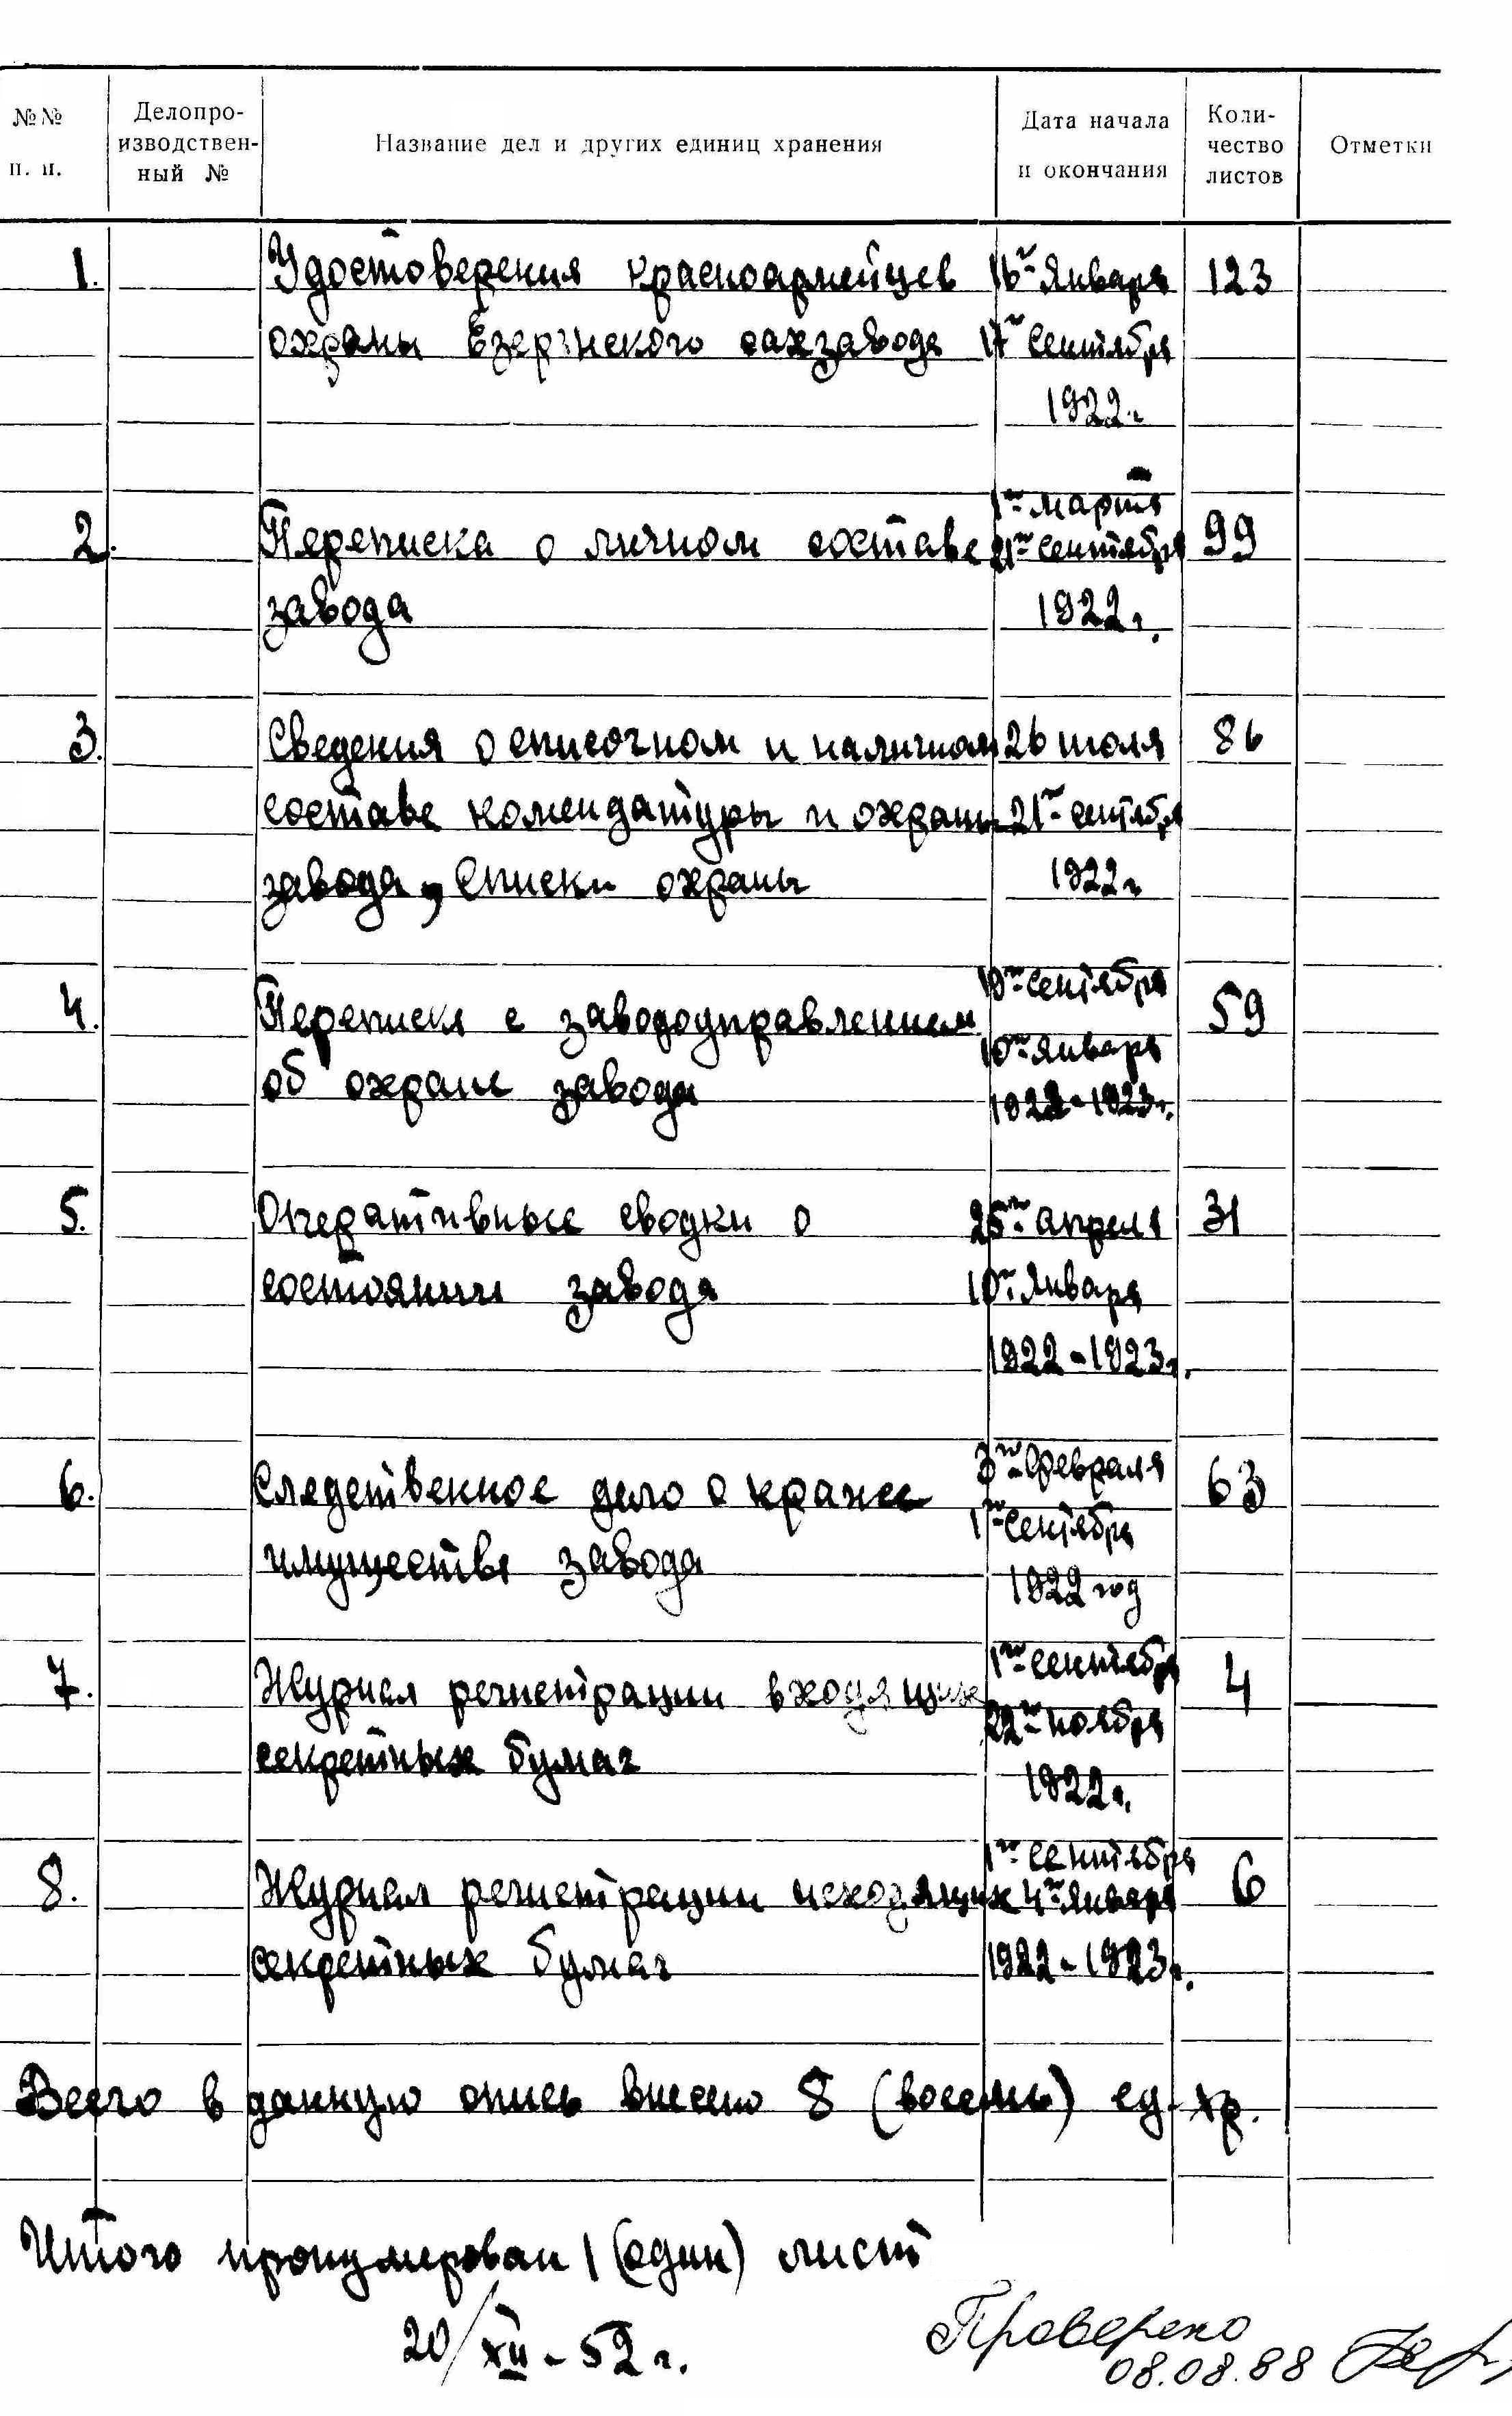 №№ п. п. Делопроизводственный № Название дел и других единиц хранения Дата начала и окончания Количество листов Отметки
1. Удостоверения красноармейцев 16го Января 123
охраны сахзавода 17го Сентября
1922г.
1го марта
2. Переписка о личном составе 21го сентября 99
завода 1922г.
3. Сведения о списочном и наличном 26 июля 86
составе комендатуры и охраны 21го сентября
завода, Списки охраны 1922г
19го сентября
4. Переписка с заводоуправлением 59
10го января
об охране завода
1922-1923г.
5. Оперативные сводки о 25го апреля 31
состоянии завода 10го Января
1922-1923г.
3го февраля
6. Следственное дело о краже 63
1го Сентября
имущества завода
1922 год
1го сентября
7. Журнал регистрации входящих 4
22го ноября
секретных бумаг
1922г.
1го сентября
8. Журнал регистрации исходящих 4го Января 6
секретных бумаг 1922-1923г.
Всего в данную опись внесено 8 (восемь) ед. хр.
Итого пронумерован 1 (один) лист
20/XII-52г.
Проверено
08.08.88